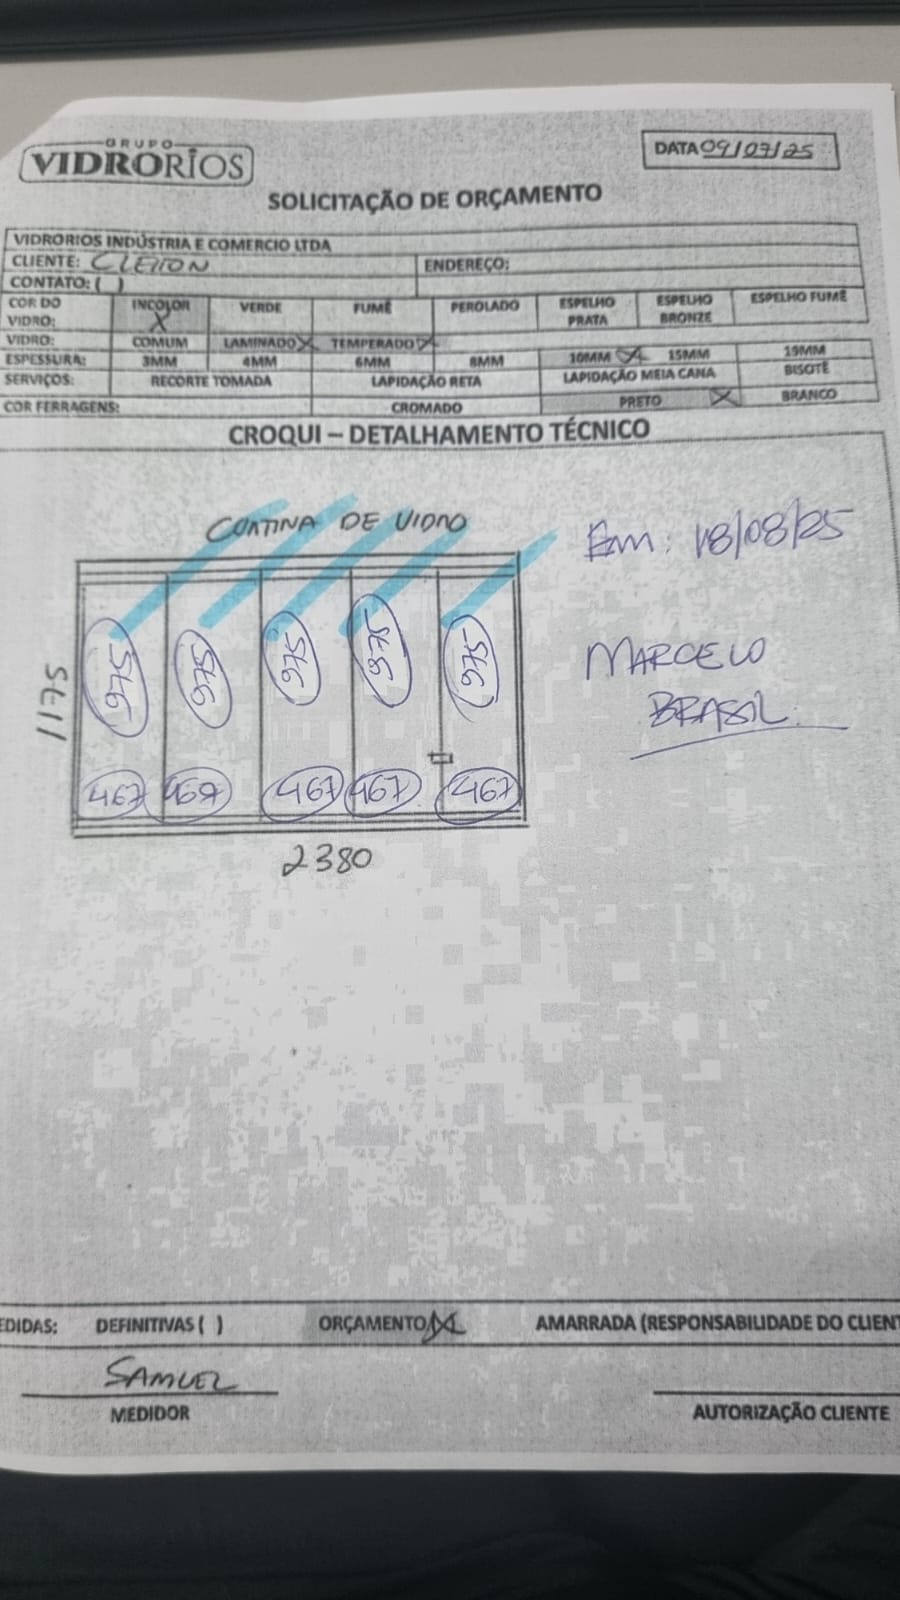 GRUPO
VIDRORIOS
DATA 09/07/25
SOLICITAÇÃO DE ORÇAMENTO
VIDRORIOS INDÚSTRIA E COMERCIO LTDA
CLIENTE: CLEITON ENDEREÇO:
CONTATO: ( )
COR DO VIDRO: INCOLOR X VERDE FUMÊ PEROLADO ESPELHO PRATA ESPELHO BRONZE ESPELHO FUMÊ
VIDRO: COMUM LAMINADO X TEMPERADO X
ESPESSURA: 3MM 4MM 6MM 8MM 10MM X 15MM 19MM
SERVIÇOS: RECORTE TOMADA LAPIDAÇÃO RETA LAPIDAÇÃO MEIA CANA BISOTÊ
COR FERRAGENS: CROMADO PRETO X BRANCO
CROQUI – DETALHAMENTO TÉCNICO
CORTINA DE VIDRO
Em: 18/08/25
975 975 975 975 975
1175
MARCELO
BRASIL.
467 467 467 467
2380
EDIDAS: DEFINITIVAS ( ) ORÇAMENTO (X) AMARRADA (RESPONSABILIDADE DO CLIEN
SAMUEL
MEDIDOR AUTORIZAÇÃO CLIENTE